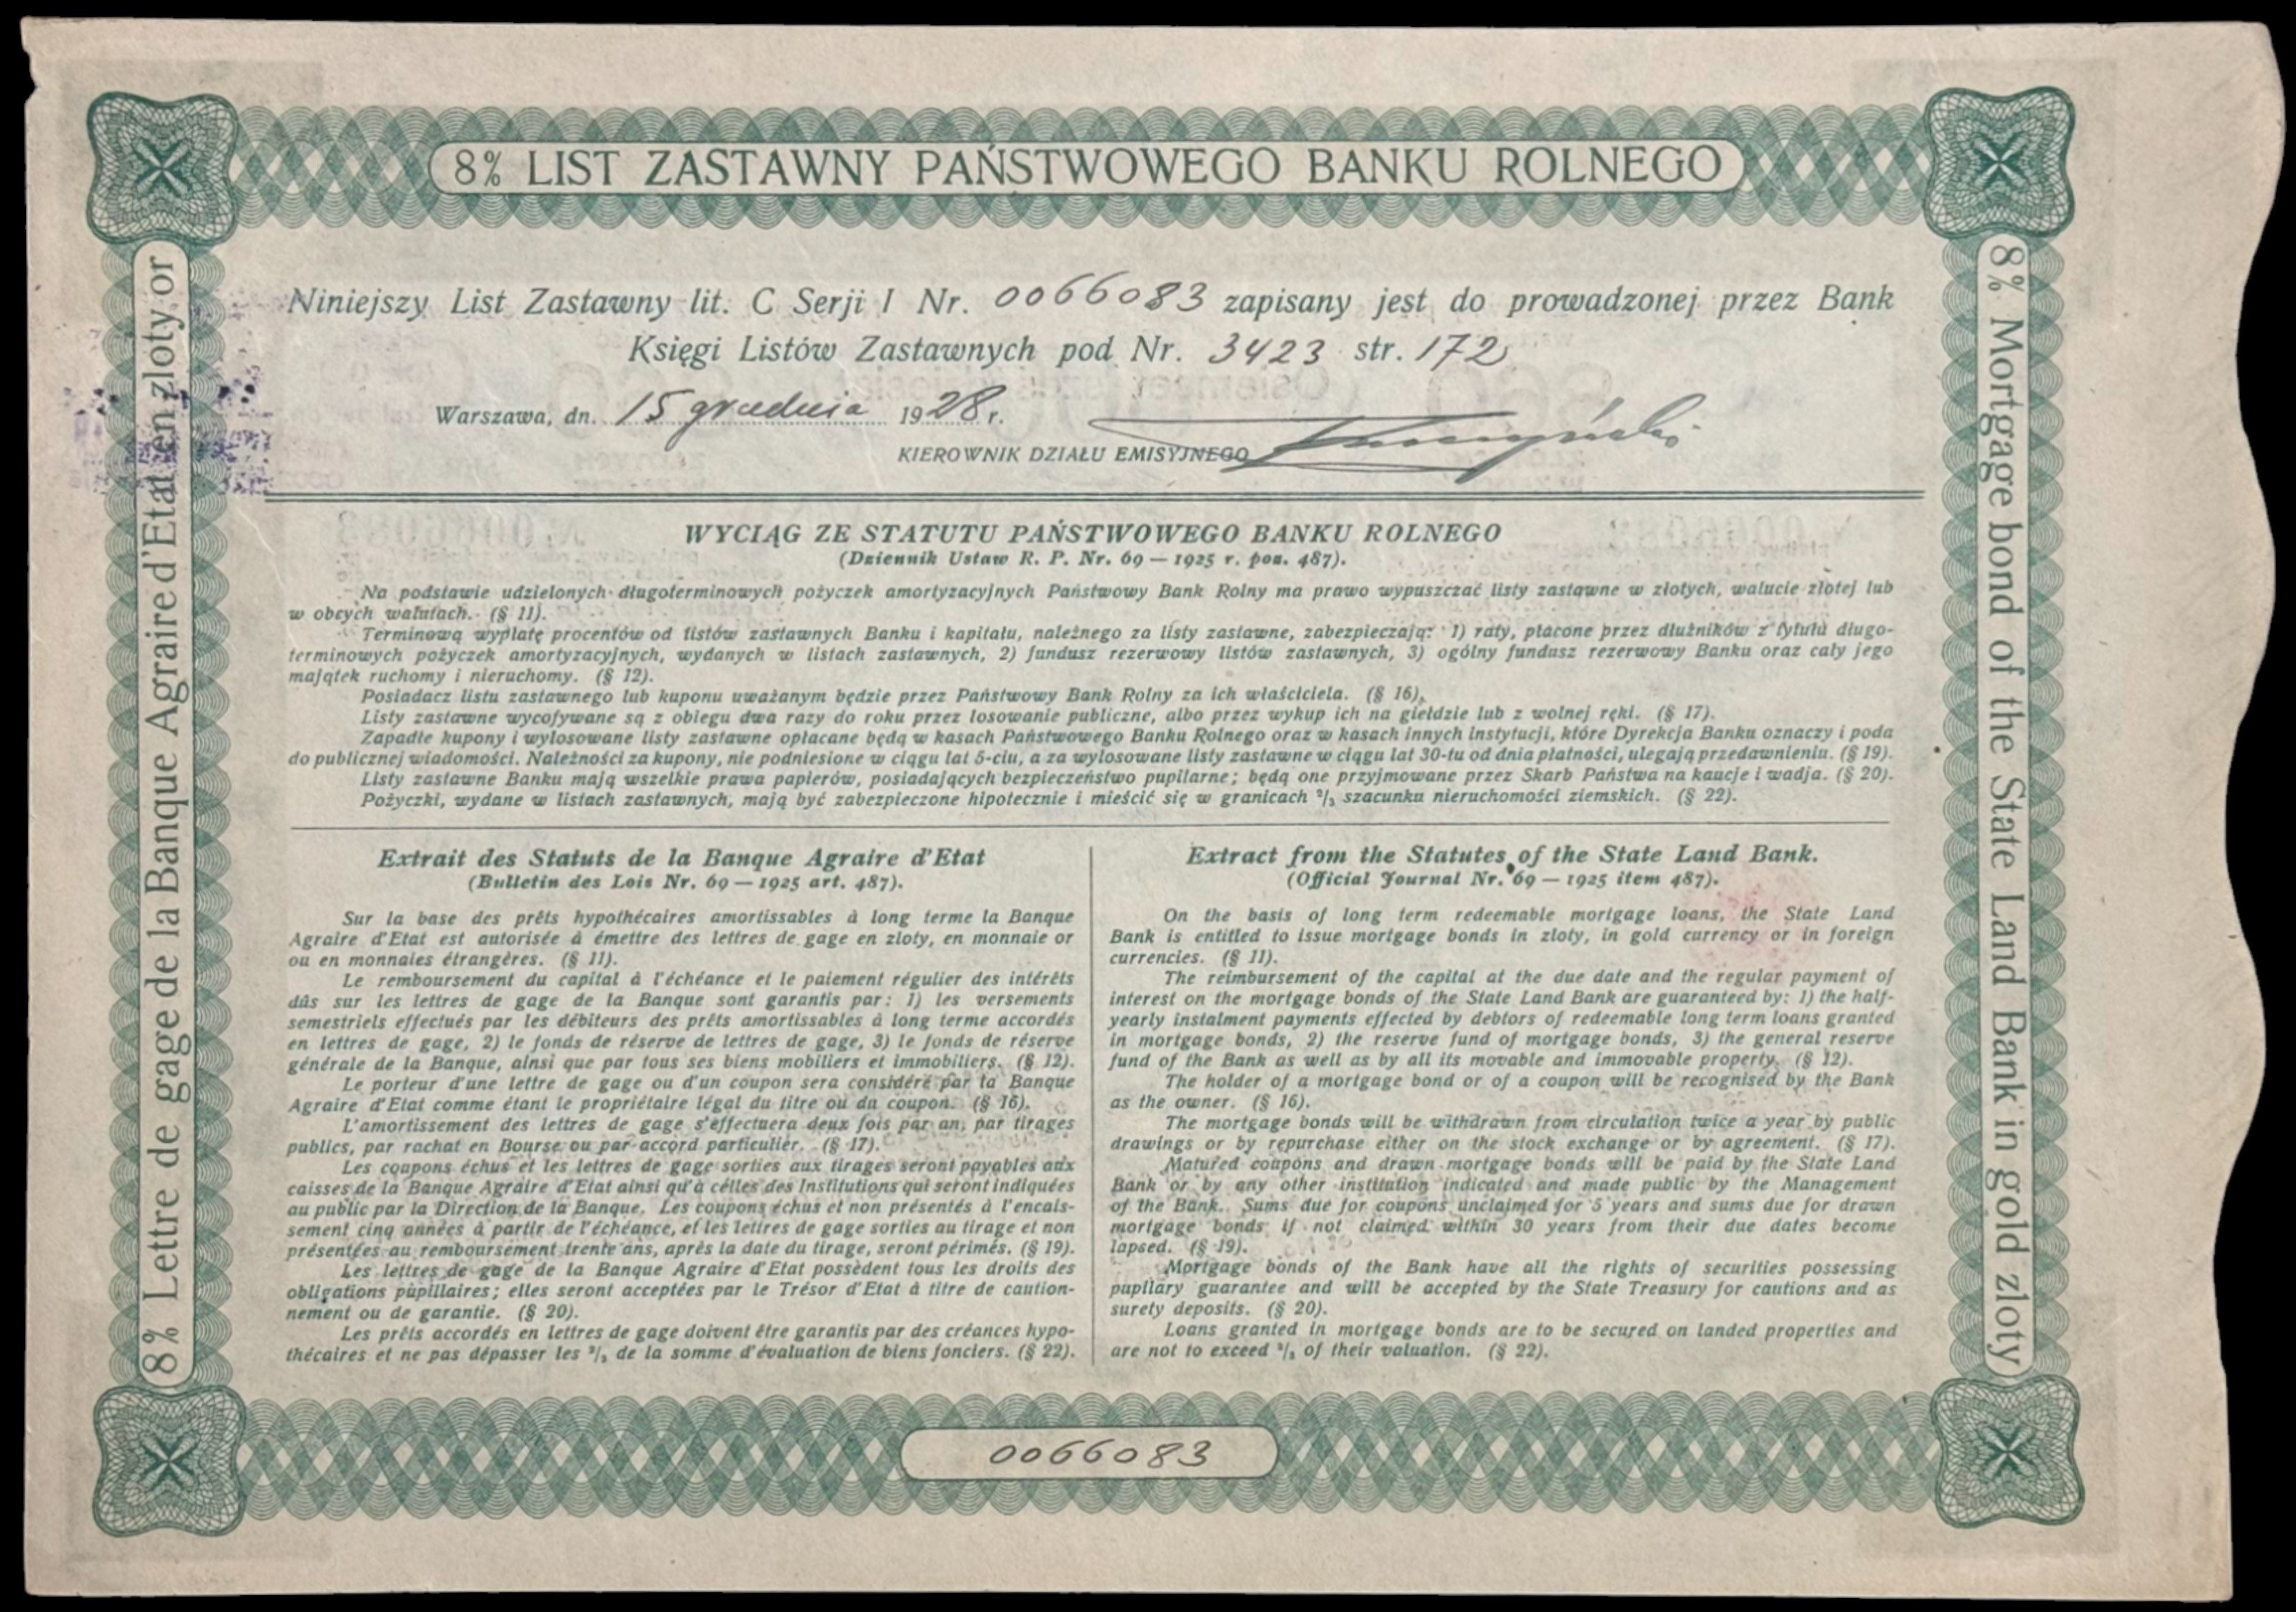 8% LIST ZASTAWNY PAŃSTWOWEGO BANKU ROLNEGO
8% Lettre de gage de la Banque Agraire d'Etat en zloty or
Niniejszy List Zastawny lit. C Serji I Nr. 0066083 zapisany jest do prowadzonej przez Bank
Księgi Listów Zastawnych pod Nr. 3423 str. 172
Warszawa, dn. 15 grudnia 1928 r.
KIEROWNIK DZIAŁU EMISYJNEGO
WYCIĄG ZE STATUTU PAŃSTWOWEGO BANKU ROLNEGO
(Dziennik Ustaw R. P. Nr. 69 — 1925 r. poz. 487).
Na podstawie udzielonych długoterminowych pożyczek amortyzacyjnych Państwowy Bank Rolny ma prawo wypuszczać listy zastawne w złotych, walucie złotej lub
w obcych walutach. (§ 11).
Terminową wypłatę procentów od listów zastawnych Banku i kapitału, należnego za listy zastawne, zabezpieczają: 1) raty, płacone przez dłużników z tytułu długo-
terminowych pożyczek amortyzacyjnych, wydanych w listach zastawnych, 2) fundusz rezerwowy listów zastawnych, 3) ogólny fundusz rezerwowy Banku oraz cały jego
majątek ruchomy i nieruchomy. (§ 12).
Posiadacz listu zastawnego lub kuponu uważanym będzie przez Państwowy Bank Rolny za ich właściciela. (§ 16).
Listy zastawne wycofywane są z obiegu dwa razy do roku przez losowanie publiczne, albo przez wykup ich na giełdzie lub z wolnej ręki. (§ 17).
Zapadłe kupony i wylosowane listy zastawne opłacane będą w kasach Państwowego Banku Rolnego oraz w kasach innych instytucji, które Dyrekcja Banku oznaczy i poda
do publicznej wiadomości. Należności za kupony, nie podniesione w ciągu lat 5-ciu, a za wylosowane listy zastawne w ciągu lat 30-tu od dnia płatności, ulegają przedawnieniu. (§ 19).
Listy zastawne Banku mają wszelkie prawa papierów, posiadających bezpieczeństwo pupilarne; będą one przyjmowane przez Skarb Państwa na kaucje i wadja. (§ 20).
Pożyczki, wydane w listach zastawnych, mają być zabezpieczone hipotecznie i mieścić się w granicach ²/₃ szacunku nieruchomości ziemskich. (§ 22).
Extrait des Statuts de la Banque Agraire d'Etat
(Bulletin des Lois Nr. 69 — 1925 art. 487).
Sur la base des prêts hypothécaires amortissables à long terme la Banque
Agraire d'Etat est autorisée à émettre des lettres de gage en zloty, en monnaie or
ou en monnaies étrangères. (§ 11).
Le remboursement du capital à l'échéance et le paiement régulier des intérêts
dûs sur les lettres de gage de la Banque sont garantis par: 1) les versements
semestriels effectués par les débiteurs des prêts amortissables à long terme accordés
en lettres de gage, 2) le fonds de réserve de lettres de gage, 3) le fonds de réserve
générale de la Banque, ainsi que par tous ses biens mobiliers et immobiliers. (§ 12).
Le porteur d'une lettre de gage ou d'un coupon sera considéré par la Banque
Agraire d'Etat comme étant le propriétaire légal du titre ou du coupon. (§ 16).
L'amortissement des lettres de gage s'effectuera deux fois par an, par tirages
publics, par rachat en Bourse ou par accord particulier. (§ 17).
Les coupons échus et les lettres de gage sorties aux tirages seront payables aux
caisses de la Banque Agraire d'Etat ainsi qu'à celles des Institutions qui seront indiquées
au public par la Direction de la Banque. Les coupons échus et non présentés à l'encais-
sement cinq années à partir de l'échéance, et les lettres de gage sorties au tirage et non
présentées au remboursement trente ans, après la date du tirage, seront périmés. (§ 19).
Les lettres de gage de la Banque Agraire d'Etat possèdent tous les droits des
obligations pupillaires; elles seront acceptées par le Trésor d'Etat à titre de caution-
nement ou de garantie. (§ 20).
Les prêts accordés en lettres de gage doivent être garantis par des créances hypo-
thécaires et ne pas dépasser les ²/₃ de la somme d'évaluation de biens fonciers. (§ 22).
Extract from the Statutes of the State Land Bank.
(Official Journal Nr. 69 — 1925 item 487).
On the basis of long term redeemable mortgage loans, the State Land
Bank is entitled to issue mortgage bonds in zloty, in gold currency or in foreign
currencies. (§ 11).
The reimbursement of the capital at the due date and the regular payment of
interest on the mortgage bonds of the State Land Bank are guaranteed by: 1) the half-
yearly instalment payments effected by debtors of redeemable long term loans granted
in mortgage bonds, 2) the reserve fund of mortgage bonds, 3) the general reserve
fund of the Bank as well as by all its movable and immovable property. (§ 12).
The holder of a mortgage bond or of a coupon will be recognised by the Bank
as the owner. (§ 16).
The mortgage bonds will be withdrawn from circulation twice a year by public
drawings or by repurchase either on the stock exchange or by agreement. (§ 17).
Matured coupons and drawn mortgage bonds will be paid by the State Land
Bank or by any other institution indicated and made public by the Management
of the Bank. Sums due for coupons unclaimed for 5 years and sums due for drawn
mortgage bonds if not claimed within 30 years from their due dates become
lapsed. (§ 19).
Mortgage bonds of the Bank have all the rights of securities possessing
pupilary guarantee and will be accepted by the State Treasury for cautions and as
surety deposits. (§ 20).
Loans granted in mortgage bonds are to be secured on landed properties and
are not to exceed ²/₃ of their valuation. (§ 22).
8% Mortgage bond of the State Land Bank in gold zloty
0066083